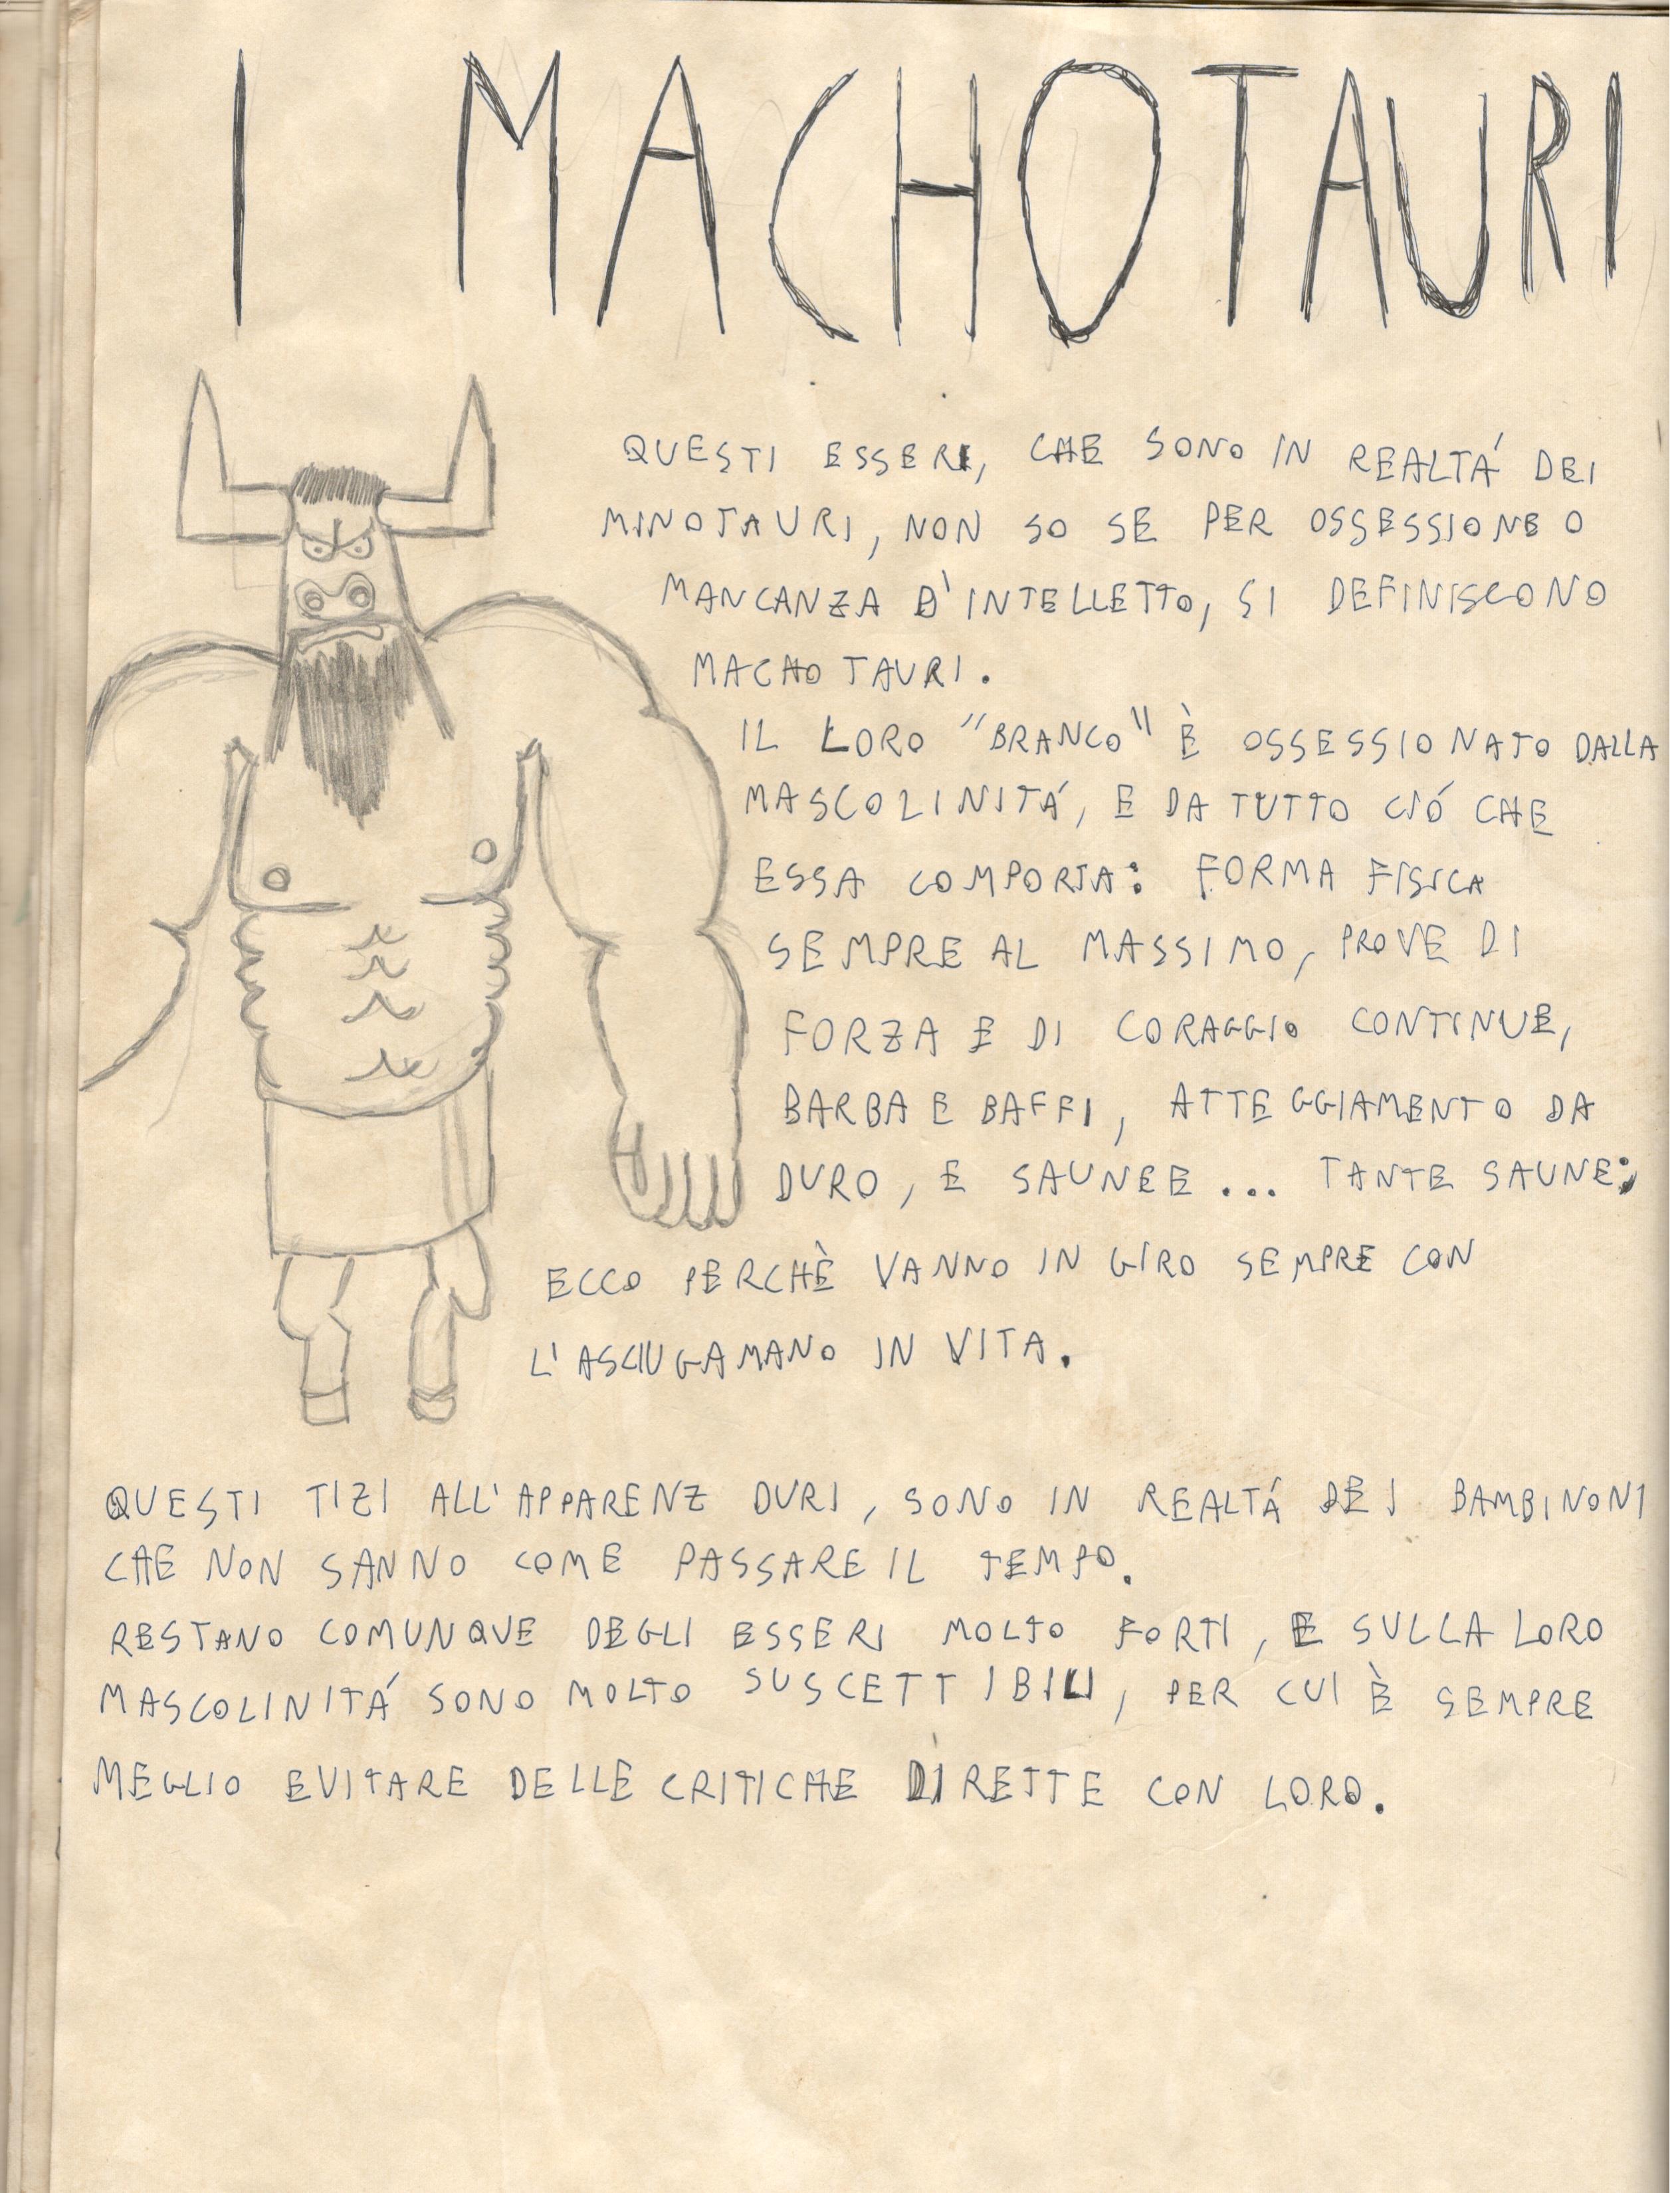 I MACHOTAURI
QUESTI ESSERI, CHE SONO IN REALTÁ DEI
MINOTAURI, NON SO SE PER OSSESSIONE O
MANCANZA D'INTELLETTO, SI DEFINISCONO
MACHOTAURI.
IL LORO "BRANCO" È OSSESSIONATO DALLA
MASCOLINITÁ, E DA TUTTO CIÓ CHE
ESSA COMPORTA: FORMA FISICA
SEMPRE AL MASSIMO, PROVE DI
FORZA E DI CORAGGIO CONTINUE,
BARBA E BAFFI, ATTEGGIAMENTO DA
DURO, E SAUNEE... TANTE SAUNE;
ECCO PERCHÈ VANNO IN GIRO SEMPRE CON
L'ASCIUGAMANO IN VITA.
QUESTI TIZI ALL'APPARENZ DURI, SONO IN REALTÁ DEI BAMBINONI
CHE NON SANNO COME PASSARE IL TEMPO.
RESTANO COMUNQUE DEGLI ESSERI MOLTO FORTI, E SULLA LORO
MASCOLINITÁ SONO MOLTO SUSCETTIBILI, PER CUI È SEMPRE
MEGLIO EVITARE DELLE CRITICHE DIRETTE CON LORO.